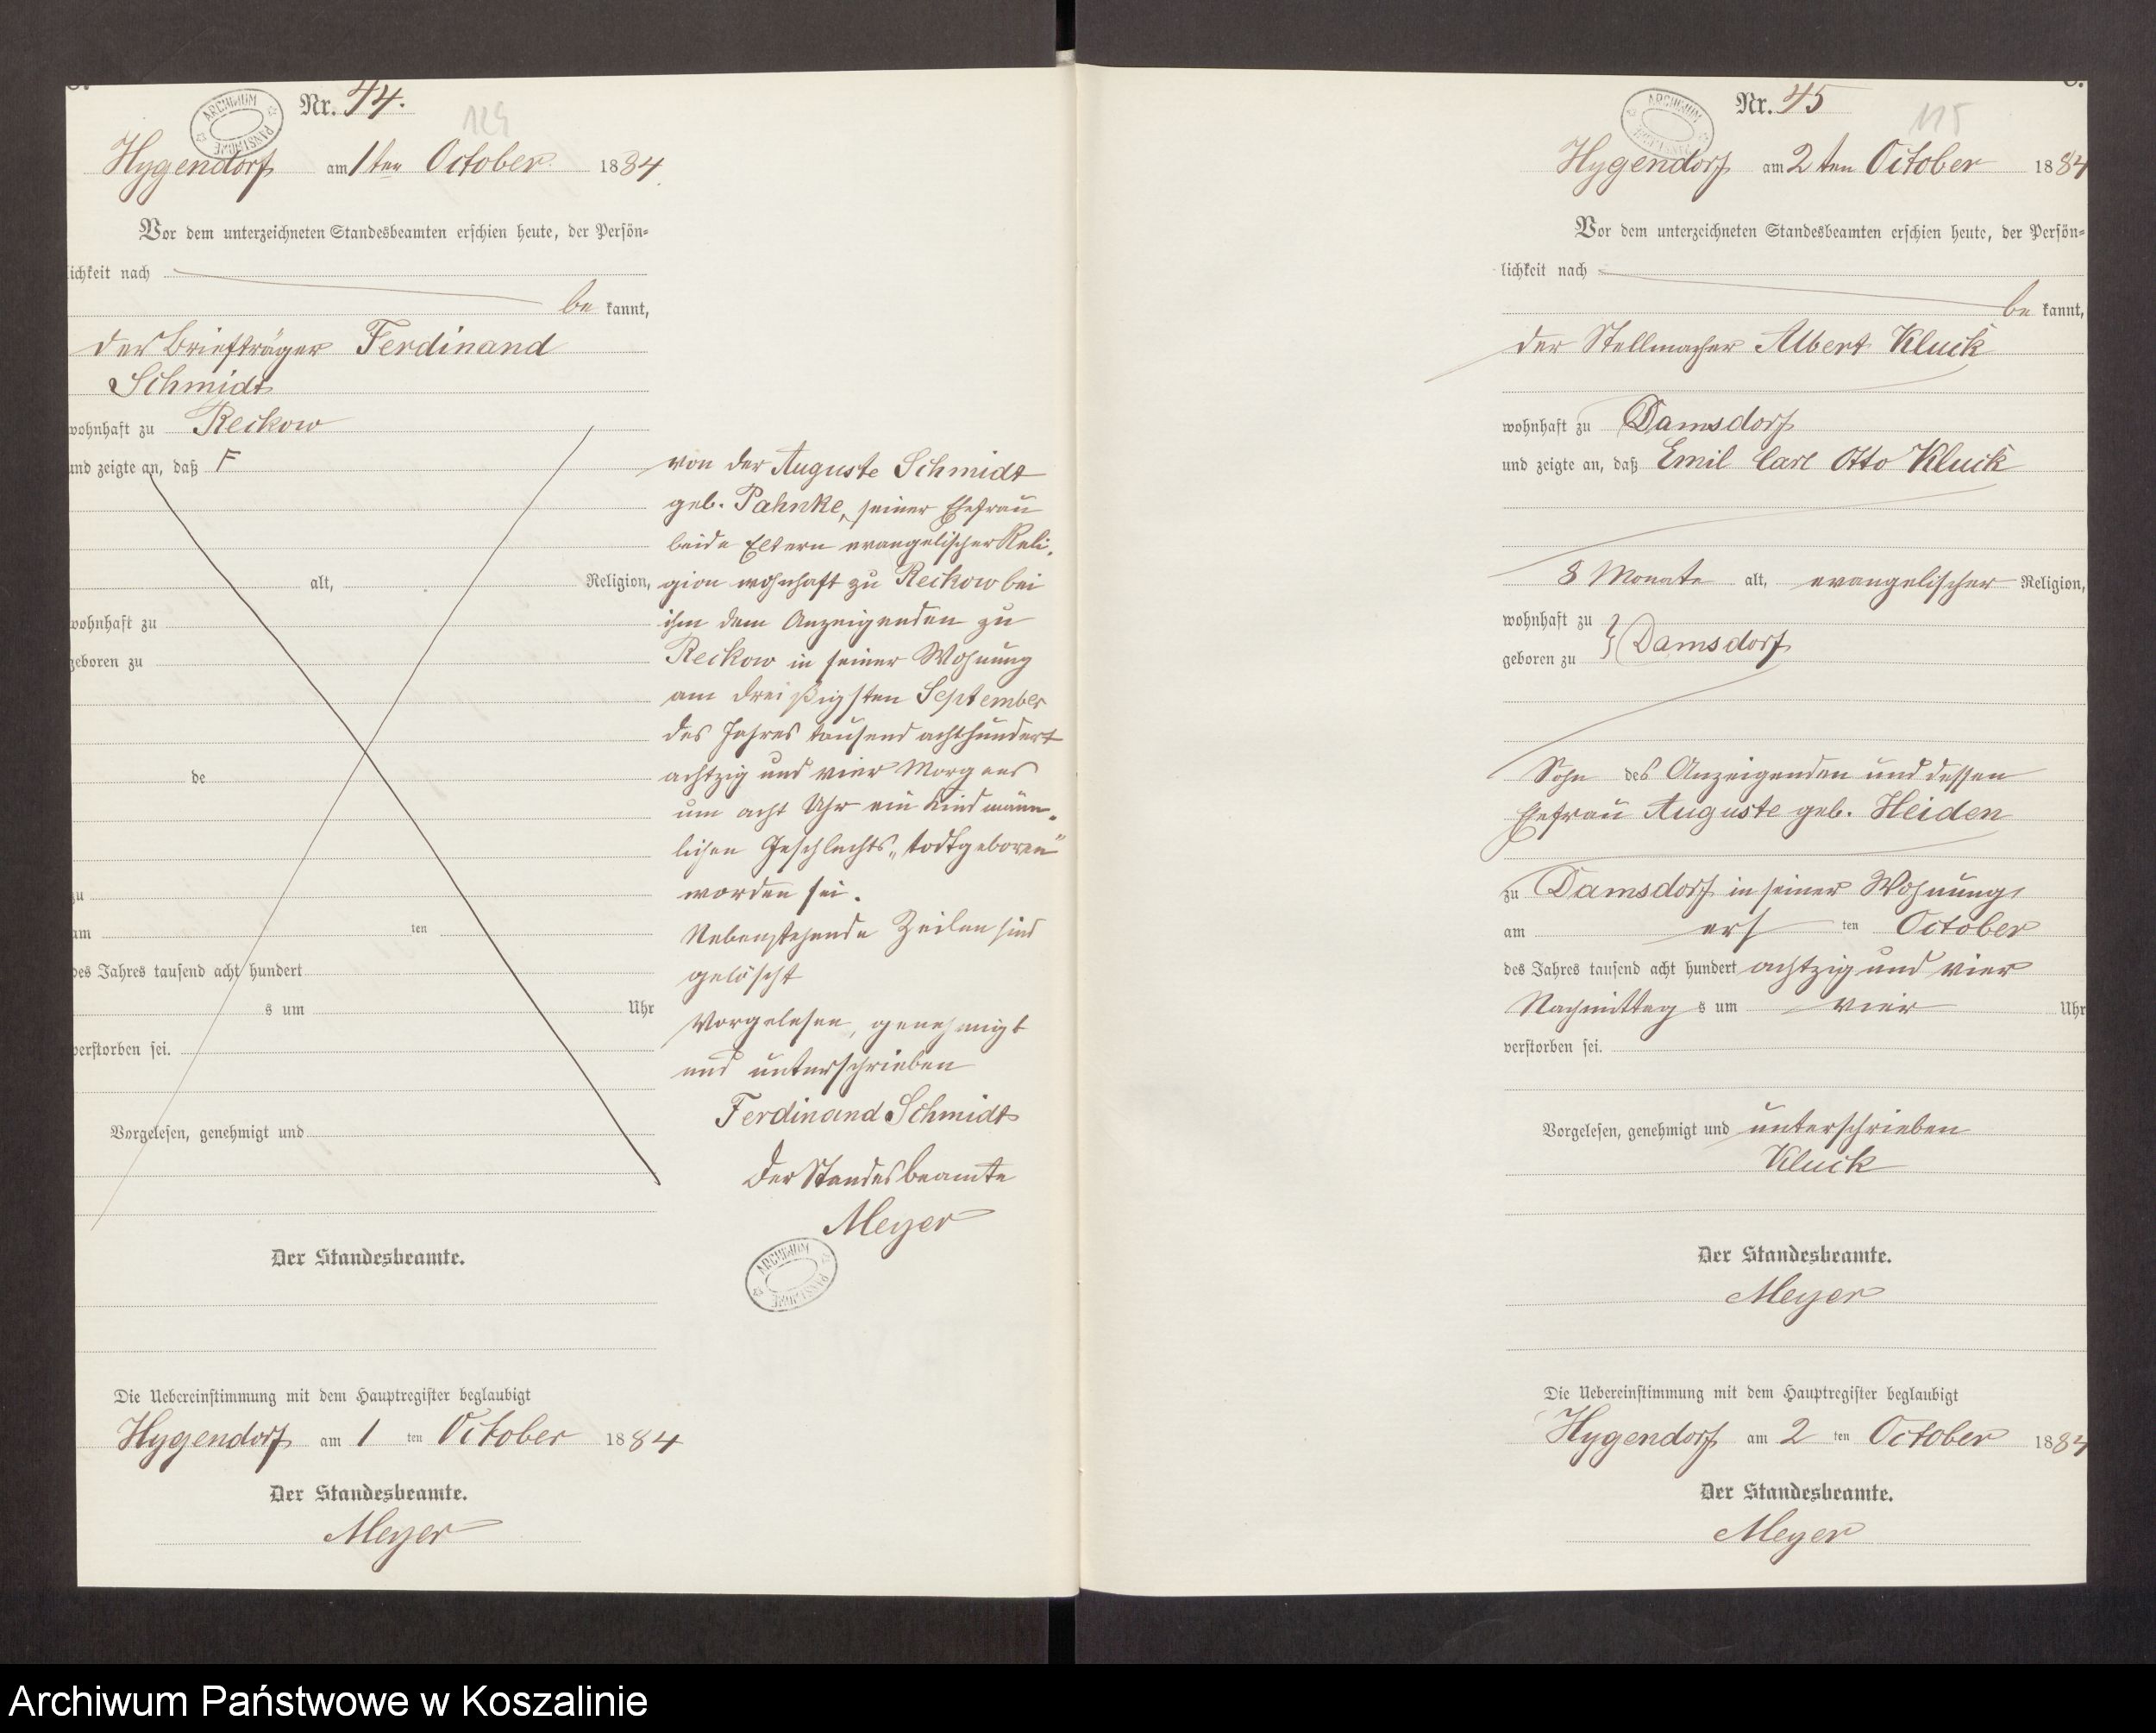 Nr. 44.
114
ARCHIWUM PAŃSTWOWE
Hygendorf am 1ten October 1884.
Vor dem unterzeichneten Standesbeamten erschien heute, der Persön-
lichkeit nach
be kannt,
der Briefträger Ferdinand
Schmidt
wohnhaft zu Reckow
und zeigte an, daß
alt, Religion,
wohnhaft zu
geboren zu
de
zu
am ten
des Jahres tausend acht hundert
s um Uhr
verstorben sei.
Vorgelesen, genehmigt und
Der Standesbeamte.
Die Uebereinstimmung mit dem Hauptregister beglaubigt
Hygendorf am 1 ten October 1884
Der Standesbeamte.
Meyer
von der Auguste Schmidt
geb. Pahnke, seiner Ehefrau
beide Eltern evangelischer Reli-
gion wohnhaft zu Reckow bei
ihm dem Anzeigenden zu
Reckow in seiner Wohnung
am dreißigsten September
des Jahres tausend achthundert
achtzig und vier Morgens
um acht Uhr ein Kind männ-
lichen Geschlechts „todtgeboren"
worden sei.
Nebenstehende Zeilen sind
gelöscht
Vorgelesen, genehmigt
und unterschrieben
Ferdinand Schmidt
Der Standesbeamte
Meyer
ARCHIWUM PAŃSTWOWE
Nr. 45
115
ARCHIWUM PAŃSTWOWE
Hygendorf am 2ten October 1884
Vor dem unterzeichneten Standesbeamten erschien heute, der Persön-
lichkeit nach
be kannt,
der Stellmacher Albert Kluck
wohnhaft zu Damsdorf
und zeigte an, daß Emil Carl Otto Kluck
8 Monate alt, evangelischer Religion,
wohnhaft zu
geboren zu } Damsdorf
Sohn des Anzeigenden und dessen
Ehefrau Auguste geb. Heiden
zu Damsdorf in seiner Wohnung,
am ers ten October
des Jahres tausend acht hundert achtzig und vier
Nachmittag s um vier Uhr
verstorben sei.
Vorgelesen, genehmigt und unterschrieben
Kluck
Der Standesbeamte.
Meyer
Die Uebereinstimmung mit dem Hauptregister beglaubigt
Hygendorf am 2 ten October 1884
Der Standesbeamte.
Meyer
Archiwum Państwowe w Koszalinie